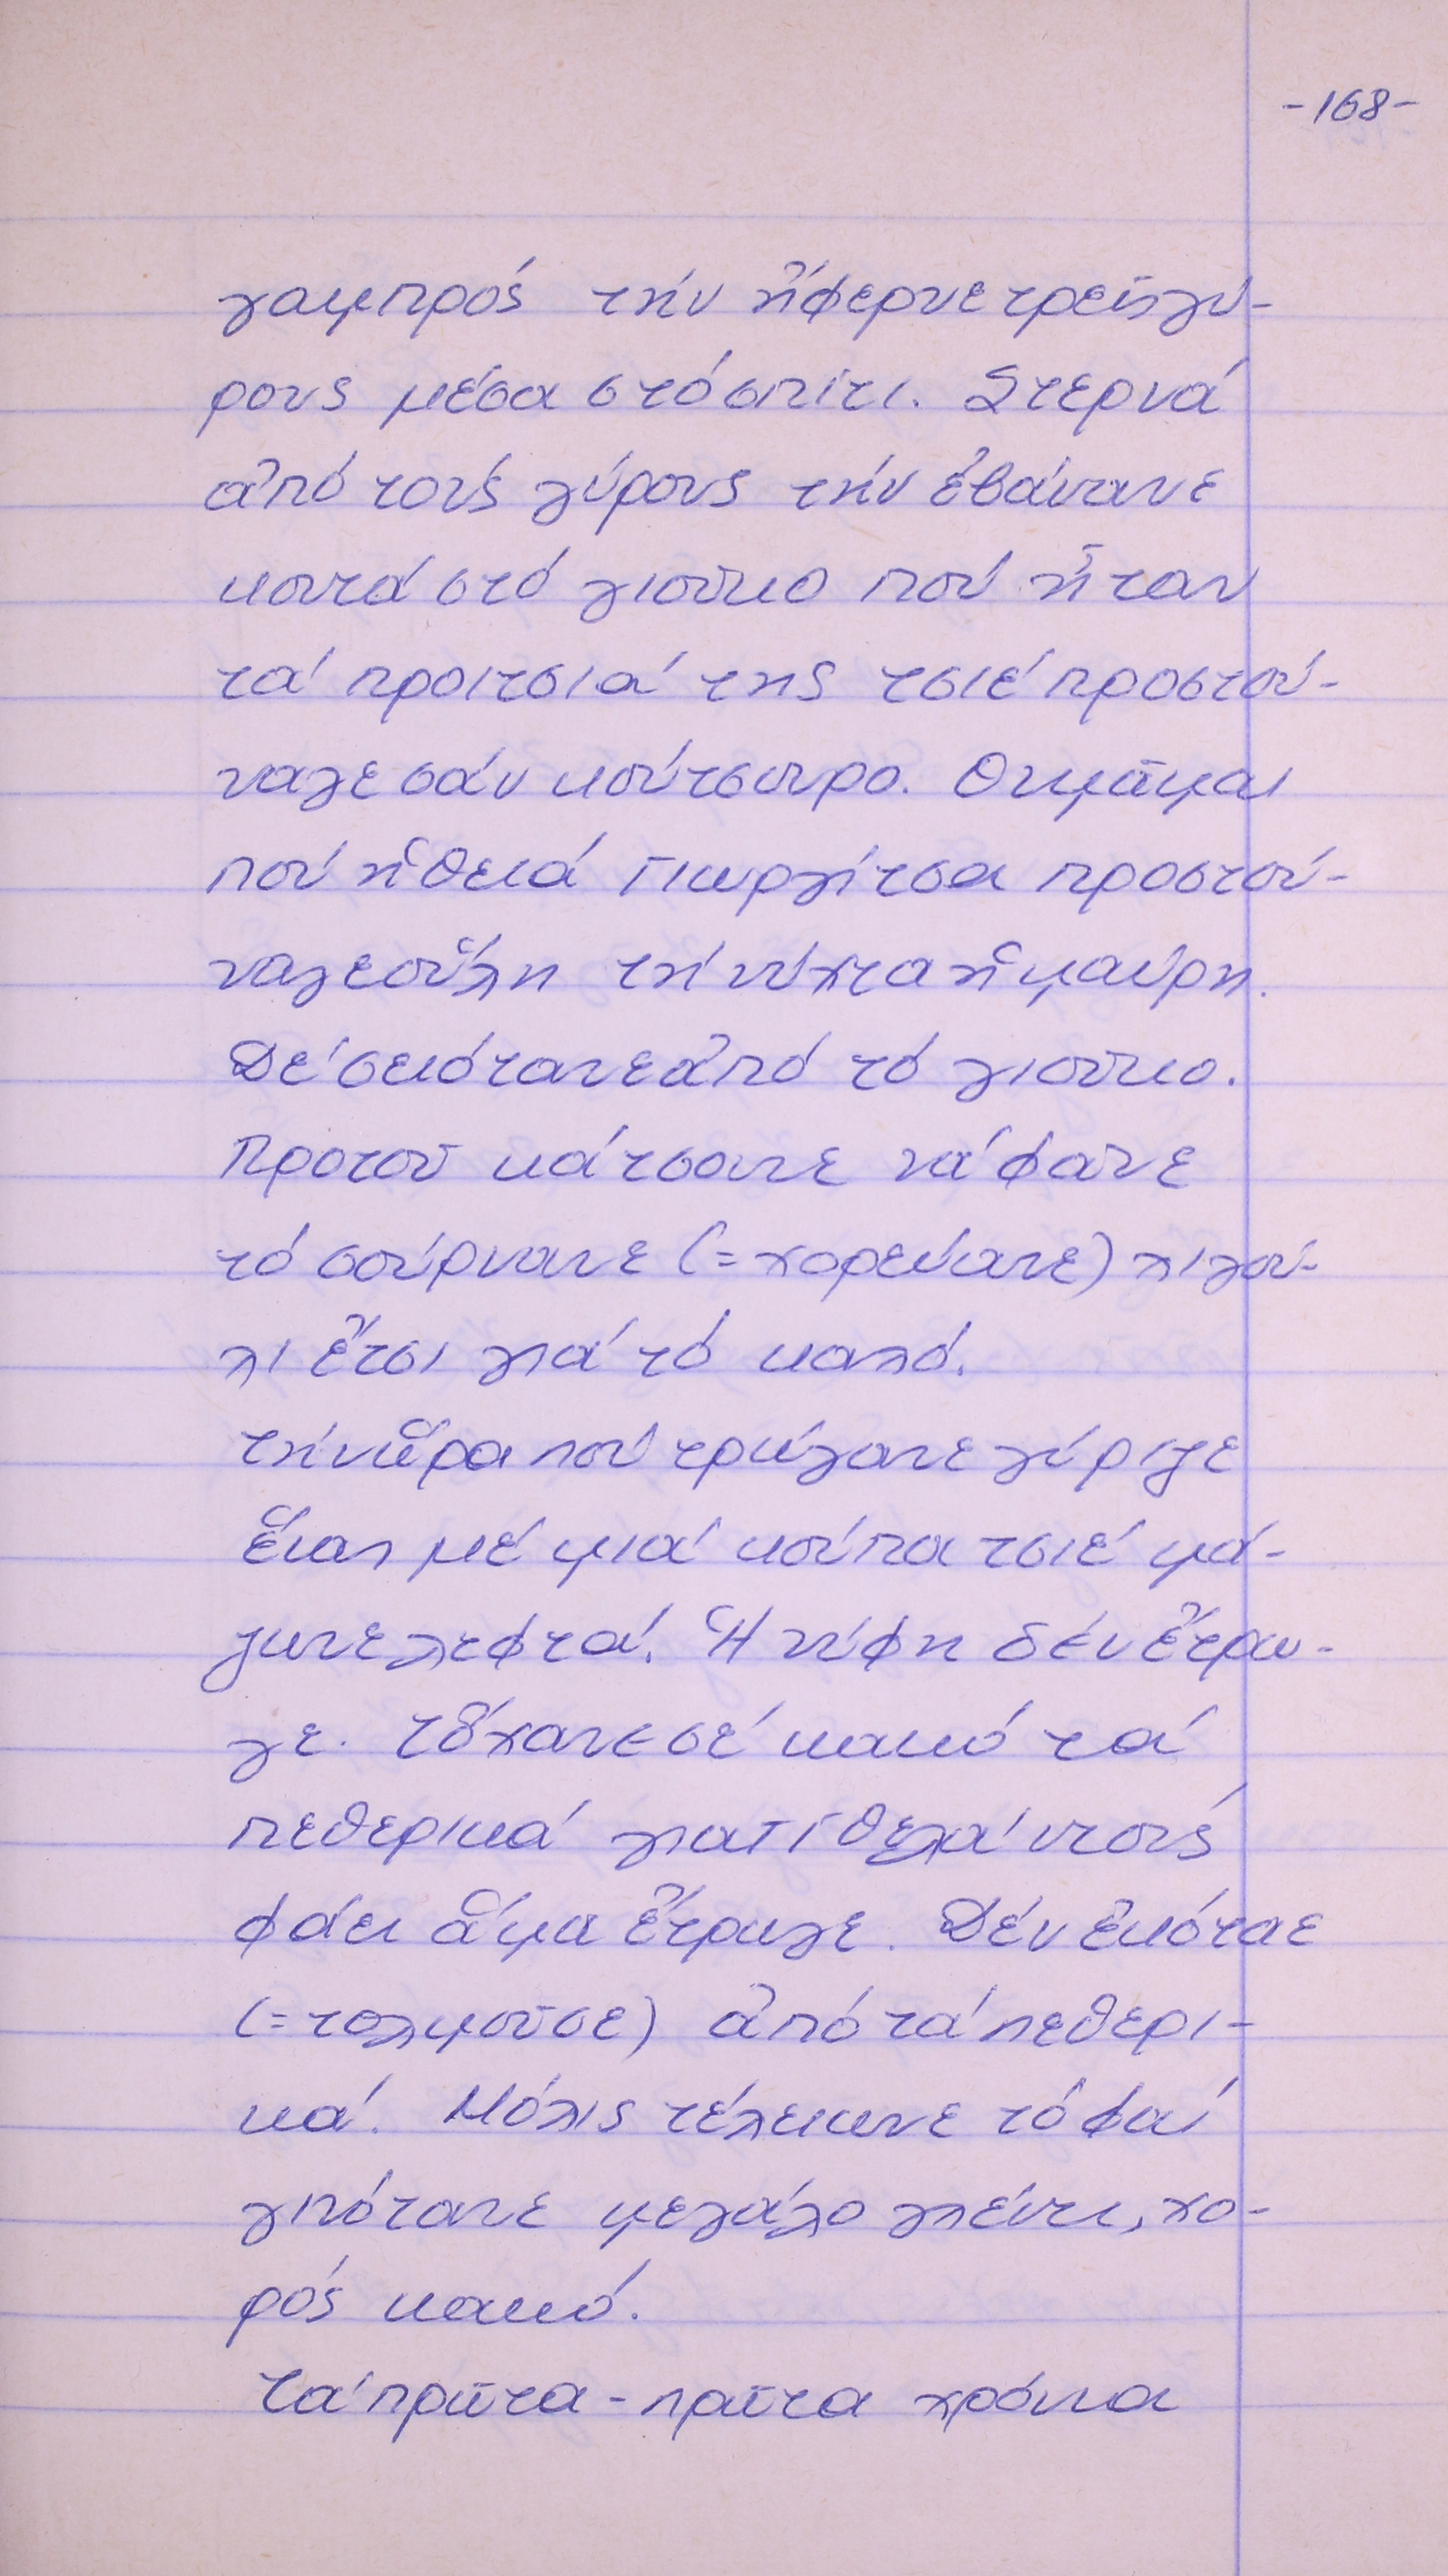 -168-
γαμπρός τήν ἤφερνε τρεῖς γύ-
ρους μέσα στό σπίτι. Στερνά
ἀπό τούς γύρους τήν ἐβάνανε
κοντά στό γιοῦκο πού ἦταν
τά προιτσιά της τσιέ προστού-
ναγε σάν κούτσουρο. Θυμᾶμαι
πού ἡ θειά Γιωργίτσα προστού-
ναγε οὕλη τή νύχτα ἡ μαύρη.
Δέ σειότανε ἀπό τό γιοῦκο.
Προτοῦ κάτσουνε νά φᾶνε
τό σούρνανε (=χορεύανε) λιγού-
λι ἔτσι γιά τό καλό.
Τήν ὥρα πού τρώγανε γύριζε
ἕνας μέ μιά κούπα τσιέ μά-
ζωνε λεφτά. Ἡ νύφη δέν ἔτρω-
γε. Τὄχανε σέ κακό τά
πεθερικά γιατί θελά ντούς
φάει ἅμα ἔτρωγε. Δέν ἐκόταε
(=τολμοῦσε) ἀπό τά πεθερι-
κά. Μόλις τέλειωνε τό φαί
γινότανε μεγάλο γλέντι, χο-
ρός κακό.
Τά πρῶτα-πρῶτα χρόνια